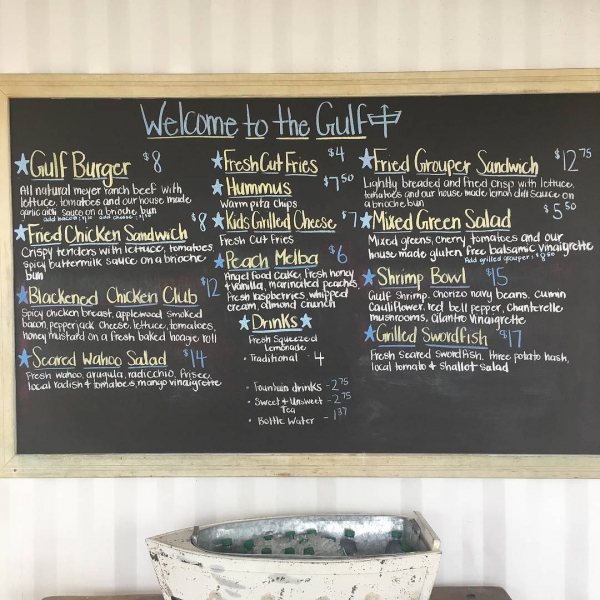 Welcome to the Gulf
Gulf Burger $8
All natural meyer ranch beef with
lettuce, tomatoes and our house made
garlic aioli sauce on a brioche bun
Fried Chicken Sandwich $8
Crispy tenders with lettuce, tomatoes,
spicy buttermilk sauce on a brioche
bun
Blackened Chicken Club $12
Spicy chicken breast, applewood smoked
bacon, pepperjack cheese, lettuce, tomatoes,
honey mustard on a fresh baked hoagie roll
Seared Wahoo Salad $14
Fresh wahoo, arugula, radicchio, frisee,
local radish & tomatoes, mango vinaigrette
Fresh Cut Fries $4
Hummus $7.50
Warm pita Chips
Kids Grilled Cheese $7
Fresh Cut Fries
Peach Melba $6
Angel food Cake, fresh honey
+ vanilla, marinated peaches,
Fresh raspberries, whipped
cream, almond crunch
Drinks
Fresh Squeezed
Lemonade
• Traditional • 4
• Fountain drinks - 2.75
• Sweet & Unsweet - 2.75
Tea
• Bottle Water - 1.37
Fried Grouper Sandwich $12.75
Lightly breaded and fried crisp with lettuce,
tomatoes and our house made lemon dill sauce on
a brioche bun
Mixed Green Salad $5.50
Mixed greens, cherry tomatoes and our
house made gluten free balsamic vinaigrette
Add grilled grouper • $8.50
Shrimp Bowl $15
Gulf Shrimp, Chorizo navy beans, cumin
Cauliflower, red bell pepper, Chanterelle
mushrooms, cilantro Vinaigrette
Grilled Swordfish $17
Fresh Seared Swordfish, three potato hash,
local tomato & Shallot Salad